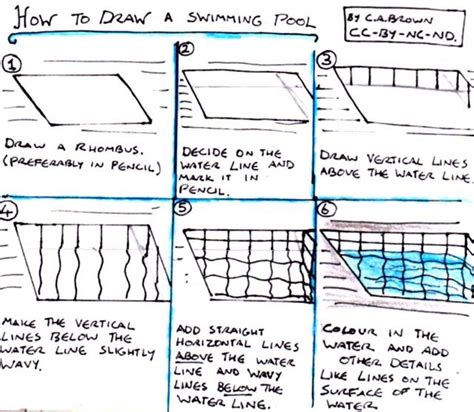 HOW TO DRAW A SWIMMING POOL
BY C.A.BROWN
CC-BY-NC-ND.
1
DRAW A RHOMBUS.
(PREFERABLY IN PENCIL)
2
DECIDE ON THE
WATER LINE AND
MARK IT IN
PENCIL.
3
DRAW VERTICAL LINES
ABOVE THE WATER LINE.
4
MAKE THE VERTICAL
LINES BELOW THE
WATER LINE SLIGHTLY
WAVY.
5
ADD STRAIGHT
HORIZONTAL LINES
ABOVE THE WATER
LINE AND WAVY
LINES BELOW THE
WATER LINE.
6
COLOUR IN THE
WATER AND ADD
OTHER DETAILS
LIKE LINES ON THE
SURFACE OF THE
WATER